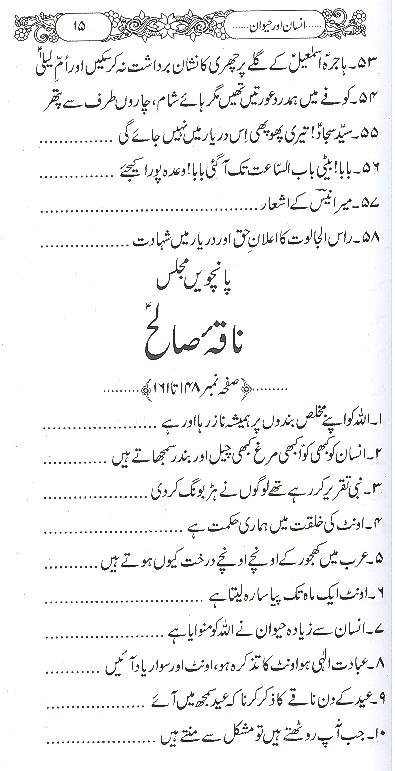 ۱۵ ......انسان اور حیوان......
۵۳۔ ہاجرہؑ اسمٰعیلؑ کے گلے پر چھری کا نشان برداشت نہ کرسکیں اور اُمِّ لیلیٰؑ
۵۴۔ کوفے میں ہمدرد عورتیں تھیں مگر ہائے شام، چاروں طرف سے پتھر
۵۵۔ سیّدِ سجادؑ! تیری پھوپھی اِس دربار میں نہیں جائے گی ...............
۵۶۔ بابا! بیٹی باب الساعت تک آگئی بابا! وعدہ پورا کیجئے ...............
۵۷۔ میر انیسؔ کے اشعار ...............
۵۸۔ راس الجالوت کا اعلانِ حق اور دربار میں شہادت ...............
پانچویں مجلس
ناقۂ صالحؑ
.........﴿صفحہ نمبر ۱۴۸ تا ۱۶۱﴾.........
۱۔ اللہ کو اپنے مخلص بندوں پر ہمیشہ ناز رہا اور ہے ...............
۲۔ انسان کو کبھی کوّا کبھی مرغ کبھی چیل اور بندر سمجھاتے ہیں ...............
۳۔ نبی تقریر کر رہے تھے لوگوں نے ہڑبونگ کردی ...............
۴۔ اونٹ کی خلقت میں ہماری حکمت ہے ...............
۵۔ عرب میں کھجور کے اونچے اونچے درخت کیوں ہوتے ہیں ...............
۶۔ اونٹ ایک ماہ تک پیاسا رہ لیتا ہے ...............
۷۔ انسان سے زیادہ حیوان نے اللہ کو منوایا ہے ...............
۸۔ عبادتِ الٰہی ہو اونٹ کا تذکرہ ہو، اونٹ اور سوار یاد آئیں ...............
۹۔ عید کے دن ناقے کا ذکر کرنا کہ عید سمجھ میں آئے ...............
۱۰۔ جب آپ روٹھتے ہیں تو مشکل سے منتے ہیں ...............